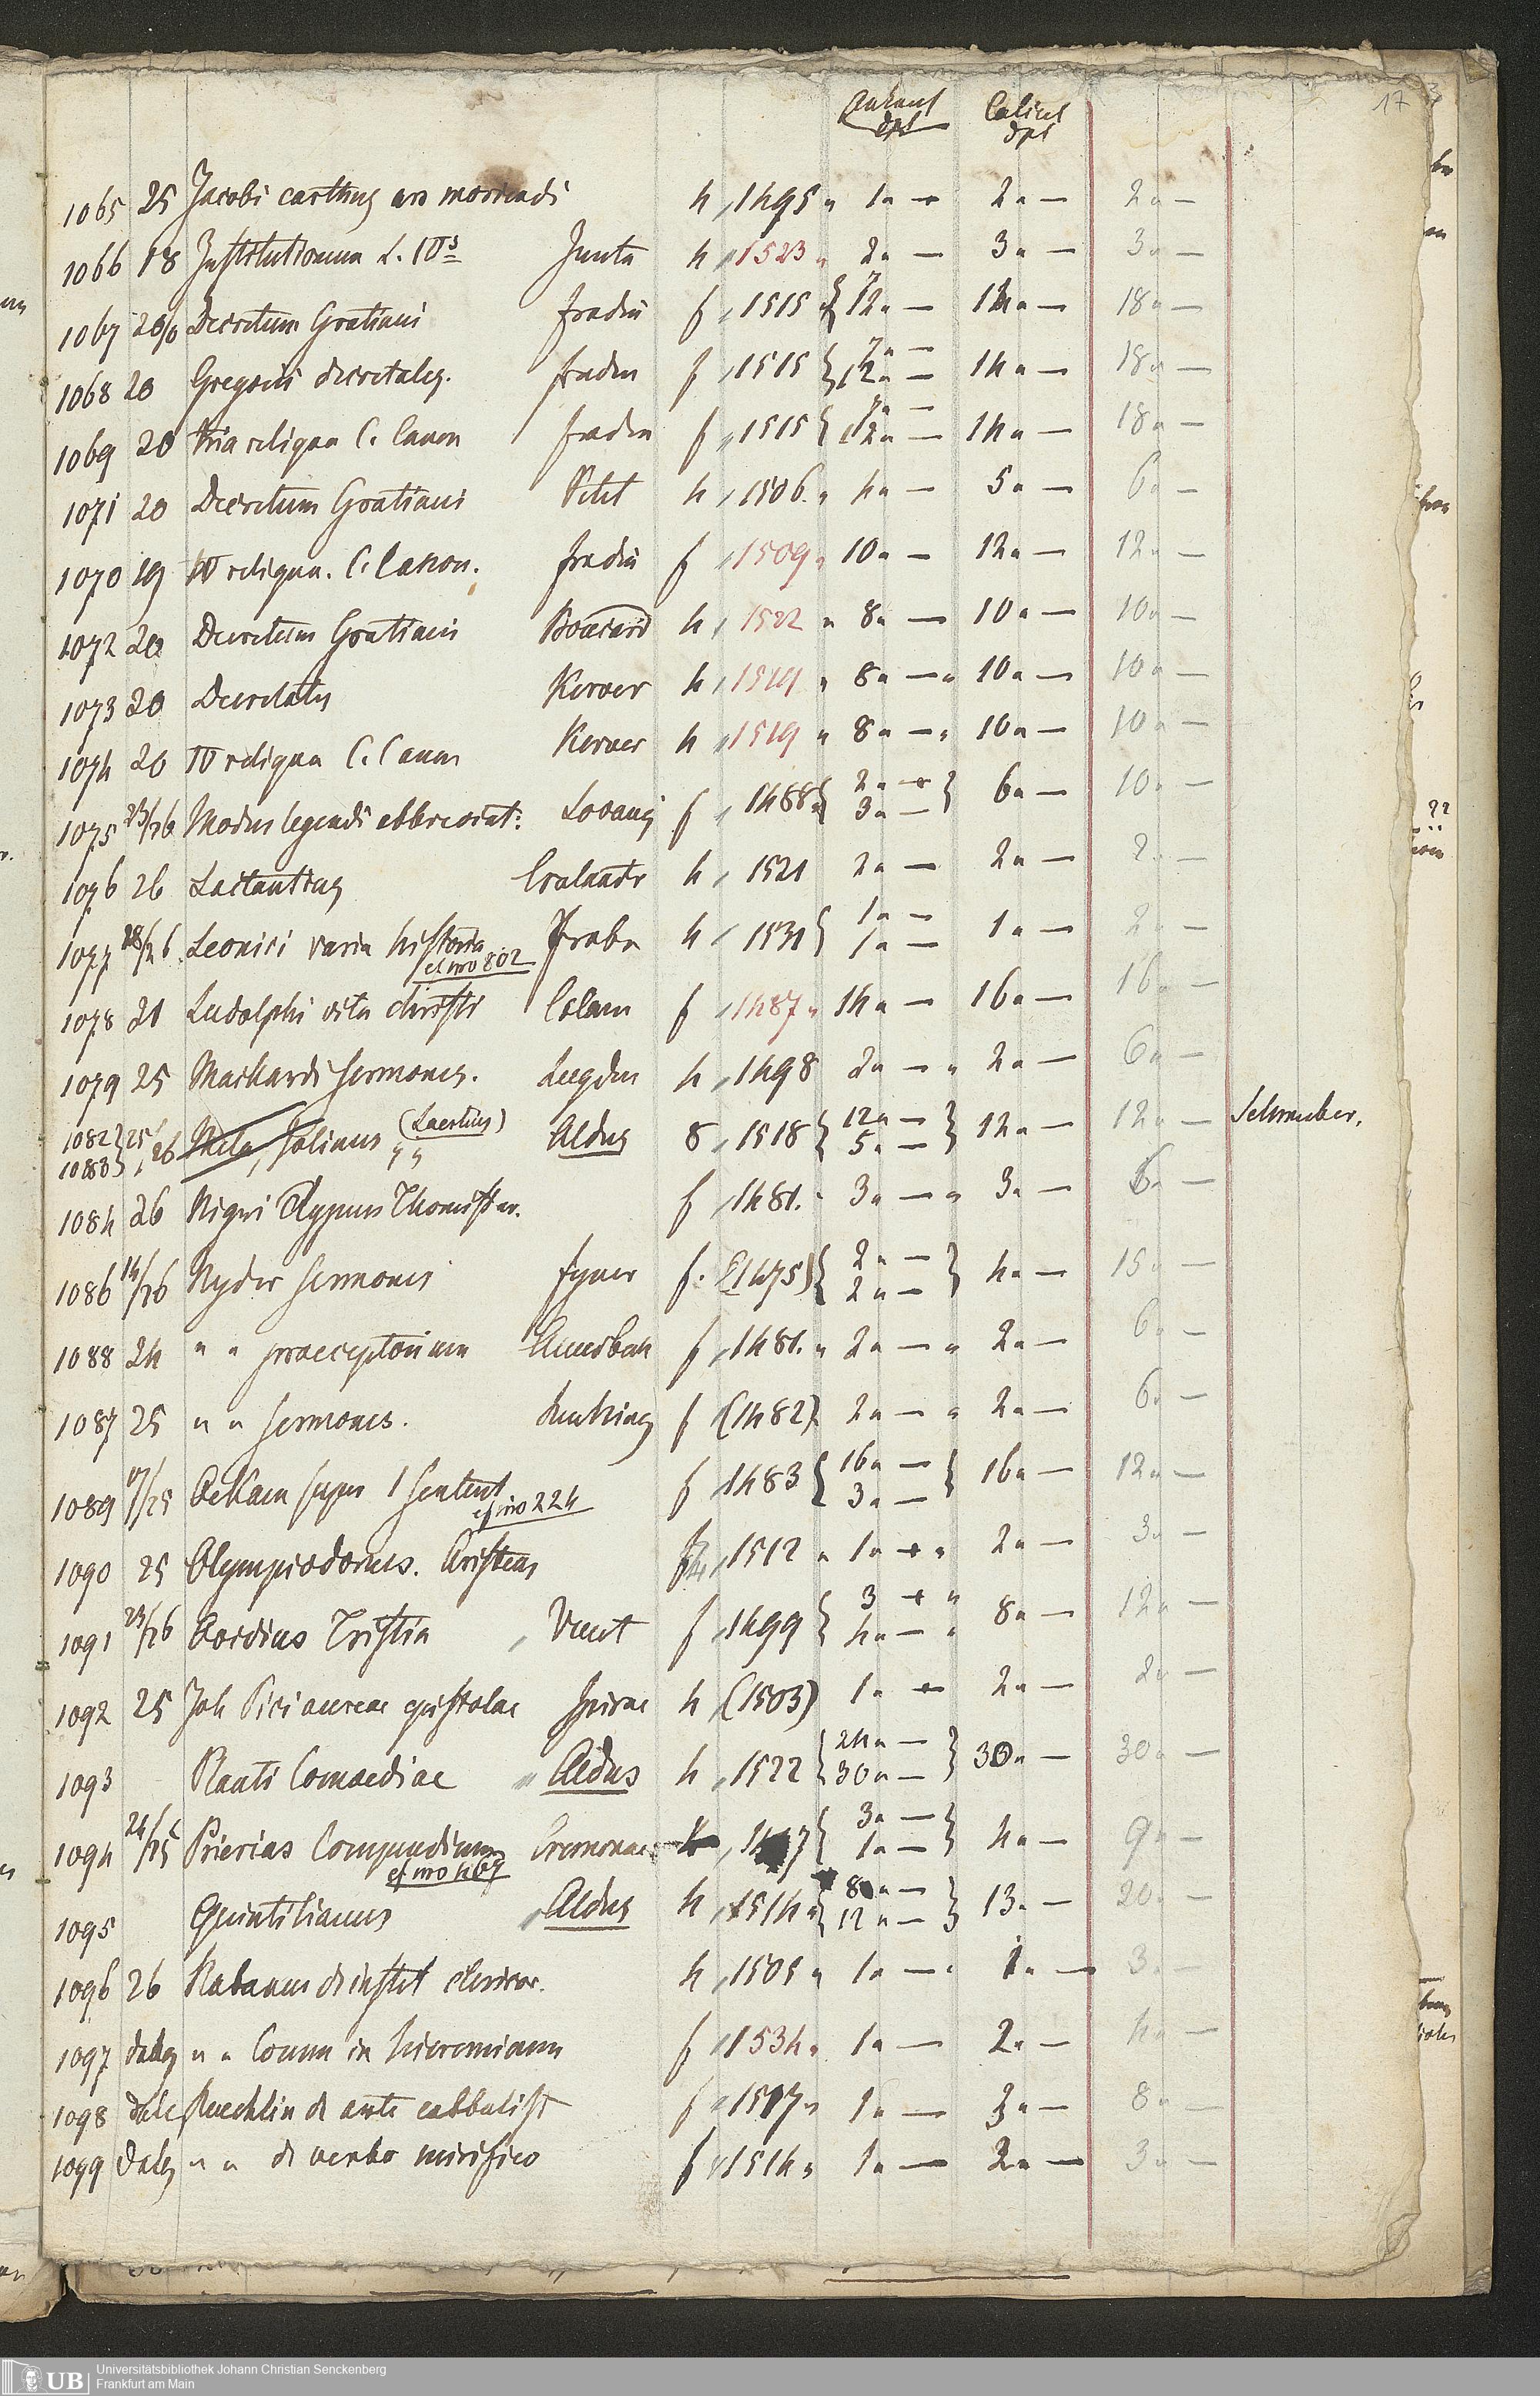 17
Ankauf Calcul
dpt dpt
1065 25 Jacobi carthus ars moriendi 4, 1495 " 1 " — 2 " — 2 " —
1066 18 Institutionum L. IVs Junta 4 " 1523 " 2 " — 3 " — 3 " —
1067 20/ Decretum Gratiani fradin f, 1515 { 7 12 " — 14 " — 18 " —
1068 20 Gregorii decretales. fradin f, 1515 { 7 " — 12 " — 14 " — 18 " —
1069 20 tria reliqua C. Canon fradin f, 1515 { 7 " — 12 " — 14 " — 18 " —
1071 20 Decretum Gratiani Petit 4, 1506. " 4 " — 5 " — 6 " —
1070 19 IV reliqua. C. Canon. fradin f, 1509 " 10 " — 12 " — 12 " —
1072 20 Decretum Gratiani 4, 1522 " 8 " — 10 " — 10 " —
1073 20 Decretales Kerver 4, 1519 " 8 " — " 10 " — 10 " —
1074 20 IV reliqua C. Canon Kerver 4 " 1519 " 8 " — " 10 " — 10 " —
1075 23/26 Modus legendi abbreviat: Lovanj f, 1488 { 2 " — 3 " — } 6 " — 10 " —
1076 26 Lactantius 4, 1521 2 " — 2 " — 2 " —
1077 18/26 Leonici varia historia Froben 4, 1531 { 1 " — 1 " — 1 " — 2 " —
cf nro 802
1078 21 Ludolphi vita christi f, 1487 " 14 " — 16 " — 16 " —
1079 25 Maihardi sermones. Lugdun 4, 1498 2 " — " 2 " — 6 " —
1082 } 25/26 Mela, Solinus (Laertius) Aldus 8, 1518 { 12 " — 5 " — } 12 " — 12 " — Schreuber.
1083 }
1084 26 Nigri Clypeus Thomistar. f, 1481. " 3 " — " 3 " — 6 " —
1086 14/26 Nyder Sermones fyner f. (1475) { 2 " — 2 " — } 4 " — 15 " —
1088 24 " " praeceptorium Amerbach f, 1481. " 2 " — " 2 " — 6 " —
1087 25 " " sermones. f (1482) 2 " — " 2 " — 6 " —
1089 17/25 Ockam super I Sentent. f, 1483 { 16 " — 3 " — } 16 " — 12 " —
cf nro 224
1090 25 Olympiodorus. Aristeas 1512 " 1 " — " 2 " — 3 " —
1091 23/26 Ovidius Tristia, Venet f, 1499 { 3 — " 4 " — " 8 " — 12 " —
1092 25 Joh Pici aureae epistolae Spirae 4 (1503) 1 " — 2 " — 2 " —
1093 Plauti Comoediae " Aldus 4, 1522 { 24 " — 30 " — } 30 " — 30 " —
1094 24/25 Prierias Compendium Cremonae { 3 " — 1 " — } 4 " — 9 " —
cf nro 467
1095 Quintilianus, Aldus 4, 1514 " { 8 " — 12 " — } 13 " — 20 " —
1096 26 Rabanus de instit clericor. 4, 1505 " 1 " — " 1 " — 3 " —
1097 dales " " Comm in hieremiam f " 1534 " 1 " — 2 " — 4 " —
1098 dales Reuchlin de arte cabbalist f " 1517 " 1 " — 3 " — 8 " —
1099 dales " " de verbo mirifico f, 1514 " 1 " — 2 " — 3 " —
UB Universitätsbibliothek Johann Christian Senckenberg
Frankfurt am Main